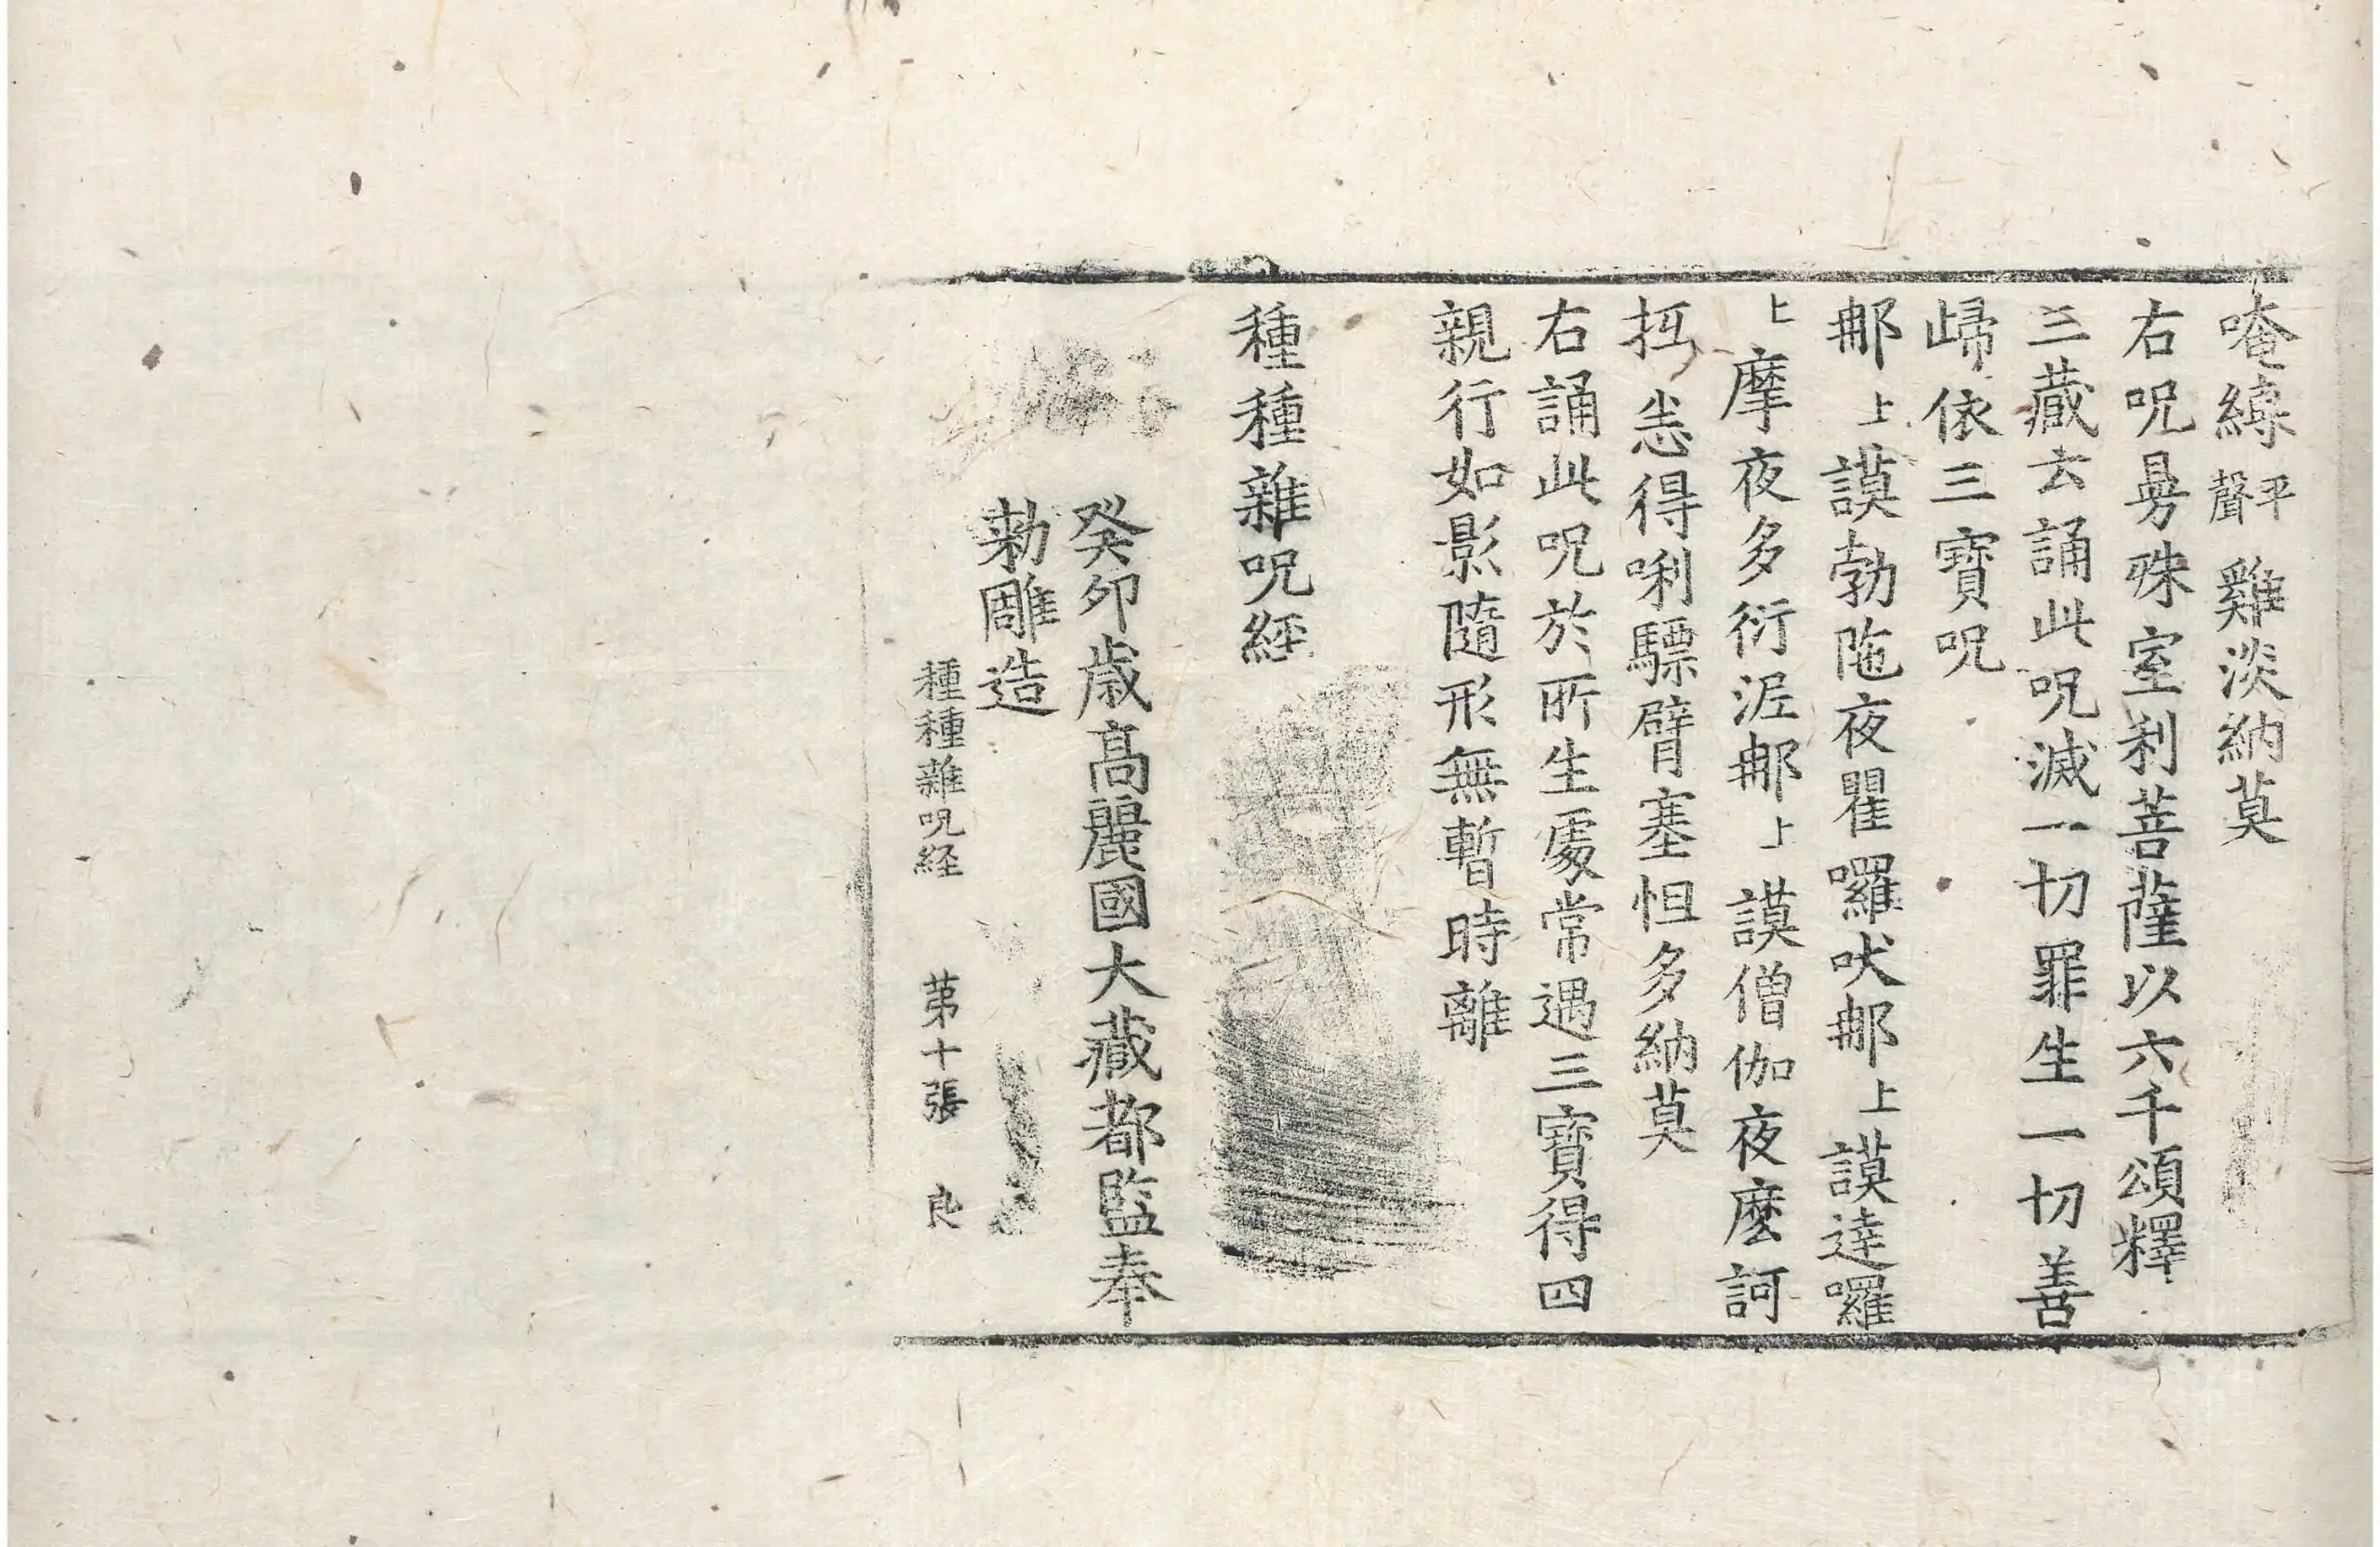 唵繂平聲雞淡納莫
右呪曼殊室利菩薩以六千頌釋
三藏去誦此呪滅一切罪生一切善
歸依三寶呪
那上謨勃陁夜瞿囉吠那上謨達囉
上摩夜多衍泥那上謨僧伽夜麽訶
𢪛恙得唎驃臂塞怛多納莫
右誦此呪於所生處常遇三寶得四
親行如影隨形無暫時離
種種雜呪經
癸卯歲高麗國大藏都監奉
勑雕造
種種雜呪経 苐十張 良